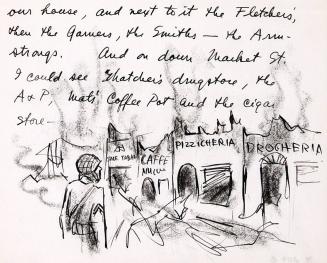 our house, and next to it the Fletchers',
then the Garners, the Smiths — the Arm-
strongs. And on down Market St.
I could see Thatcher's drugstore, the
A & P, Mats' Coffee Pot and the cigar
store—
PIZZICHERIA
DROGHERIA
CAFFE